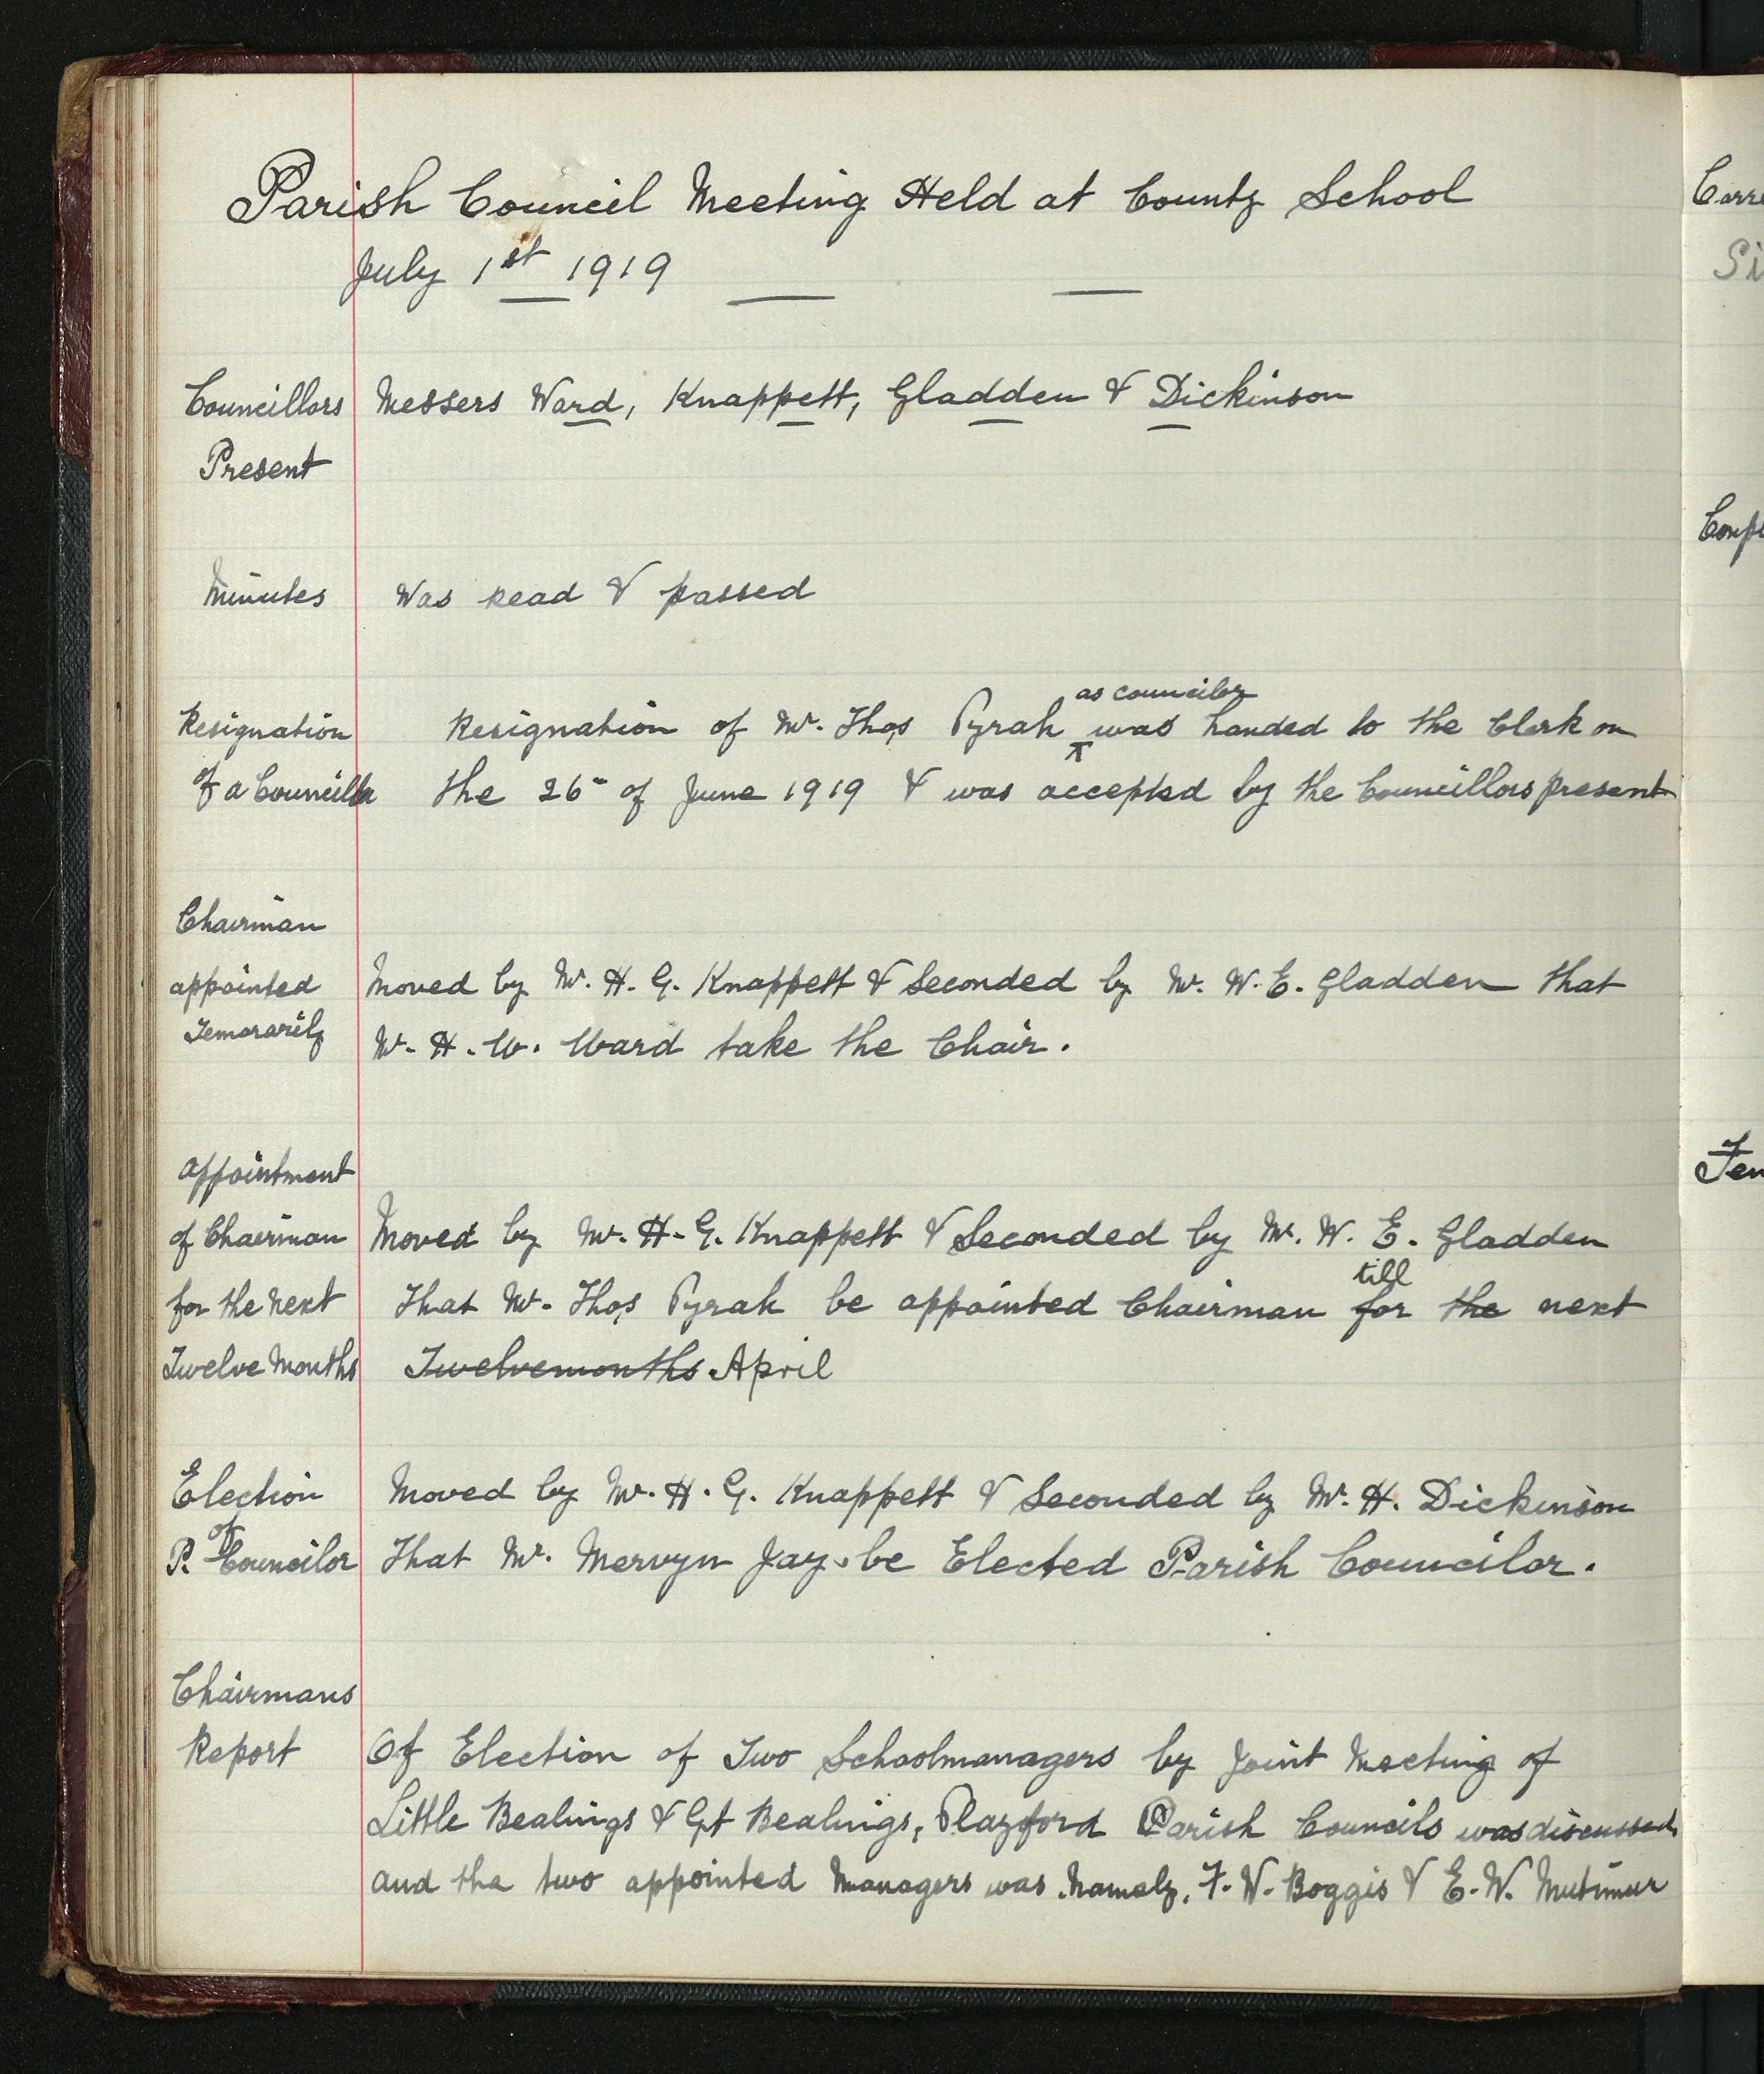 Parish Council Meeting Held at County School
July 1st 1919
Councillors Messers Ward, Knappett, Gladden & Dickinson
Present
Minutes Was read & passed
as councilor
Resignation Resignation of Mr. Thos Pyrah was handed to the Clerk on
of a Councillor the 26" of June 1919 & was accepted by the Councillors present
Chairman
appointed Moved by Mr. H. G. Knappett & Seconded by Mr. W. E. Gladden that
Temorarily Mr. H. W. Ward take the Chair.
appointment
of Chairman Moved by Mr. H. G. Knappett & Seconded by Mr. W. E. Gladden
till
for the next That Mr. Thos Pyrah be appointed Chairman for the next
Twelve Months Twelvemonths April
Election Moved by Mr. H. G. Knappett & Seconded by Mr. H. Dickinson
of
P. Councilor That Mr. Mervyn Jay be Elected Parish Councilor.
Chairmans
Report Of Election of Two Schoolmanagers by Joint Meeting of
Little Bealings & Gt Bealings, Playford Parish Councils was discussed
and the two appointed Managers was Namely, F. W. Boggis & E. W. Mutimur